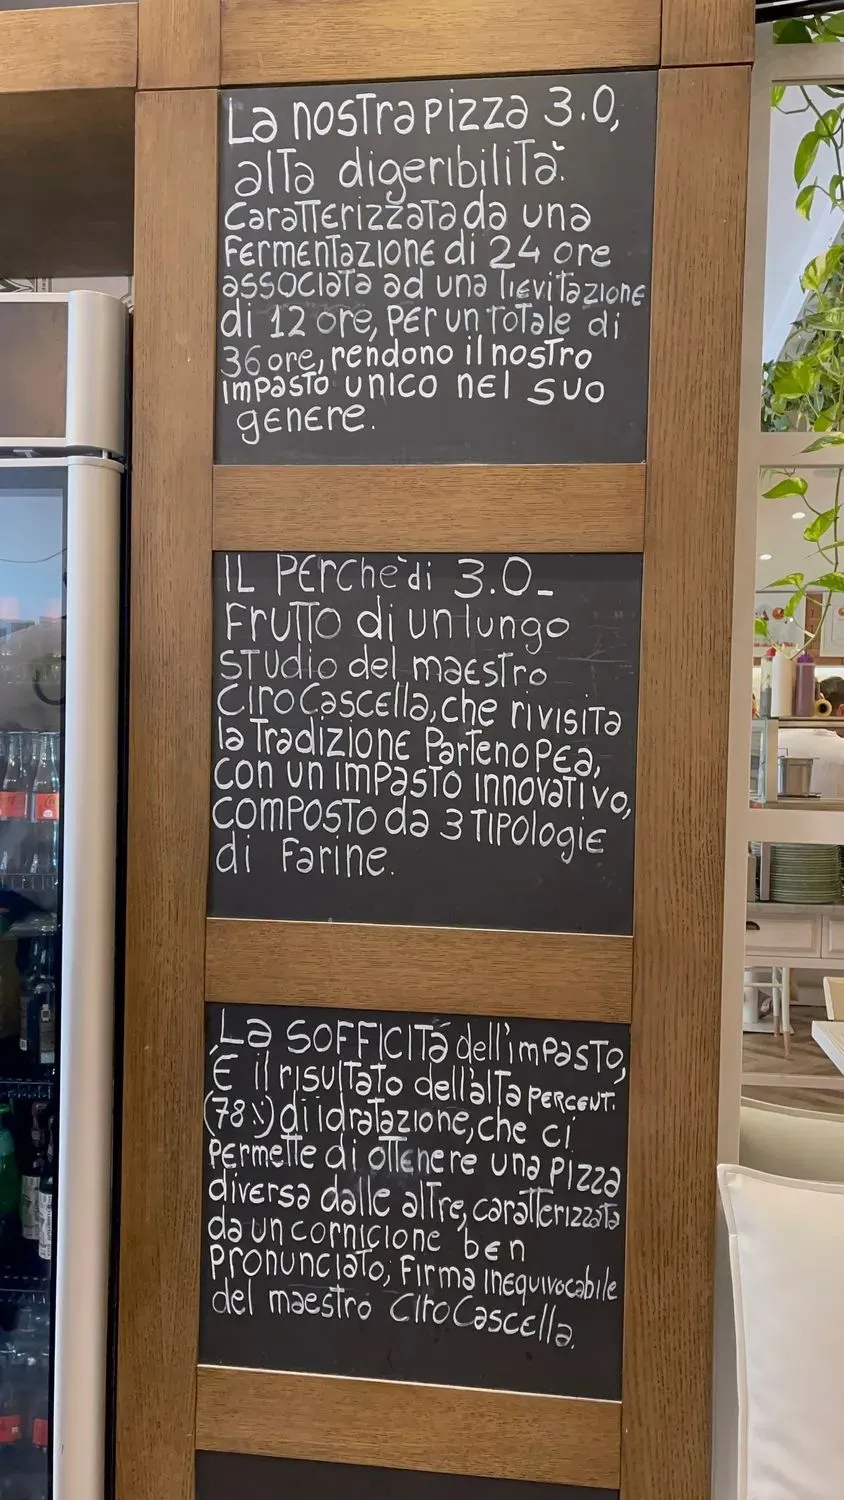 La nostra pizza 3.0,
alta digeribilità.
Caratterizzata da una
fermentazione di 24 ore
associata ad una lievitazione
di 12 ore, per un totale di
36 ore, rendono il nostro
impasto unico nel suo
genere.
IL PERchè di 3.0_
Frutto di un lungo
studio del maestro
Ciro Cascella, che rivisita
la Tradizione Partenopea,
con un impasto innovativo,
composto da 3 tipologie
di farine.
La SOFFICITà dell'impasto,
È il risultato dell'alta PERCENT.
(78%) di idratazione, che ci
permette di ottenere una pizza
diversa dalle altre, caratterizzata
da un cornicione ben
pronunciato, firma inequivocabile
del maestro Ciro Cascella.